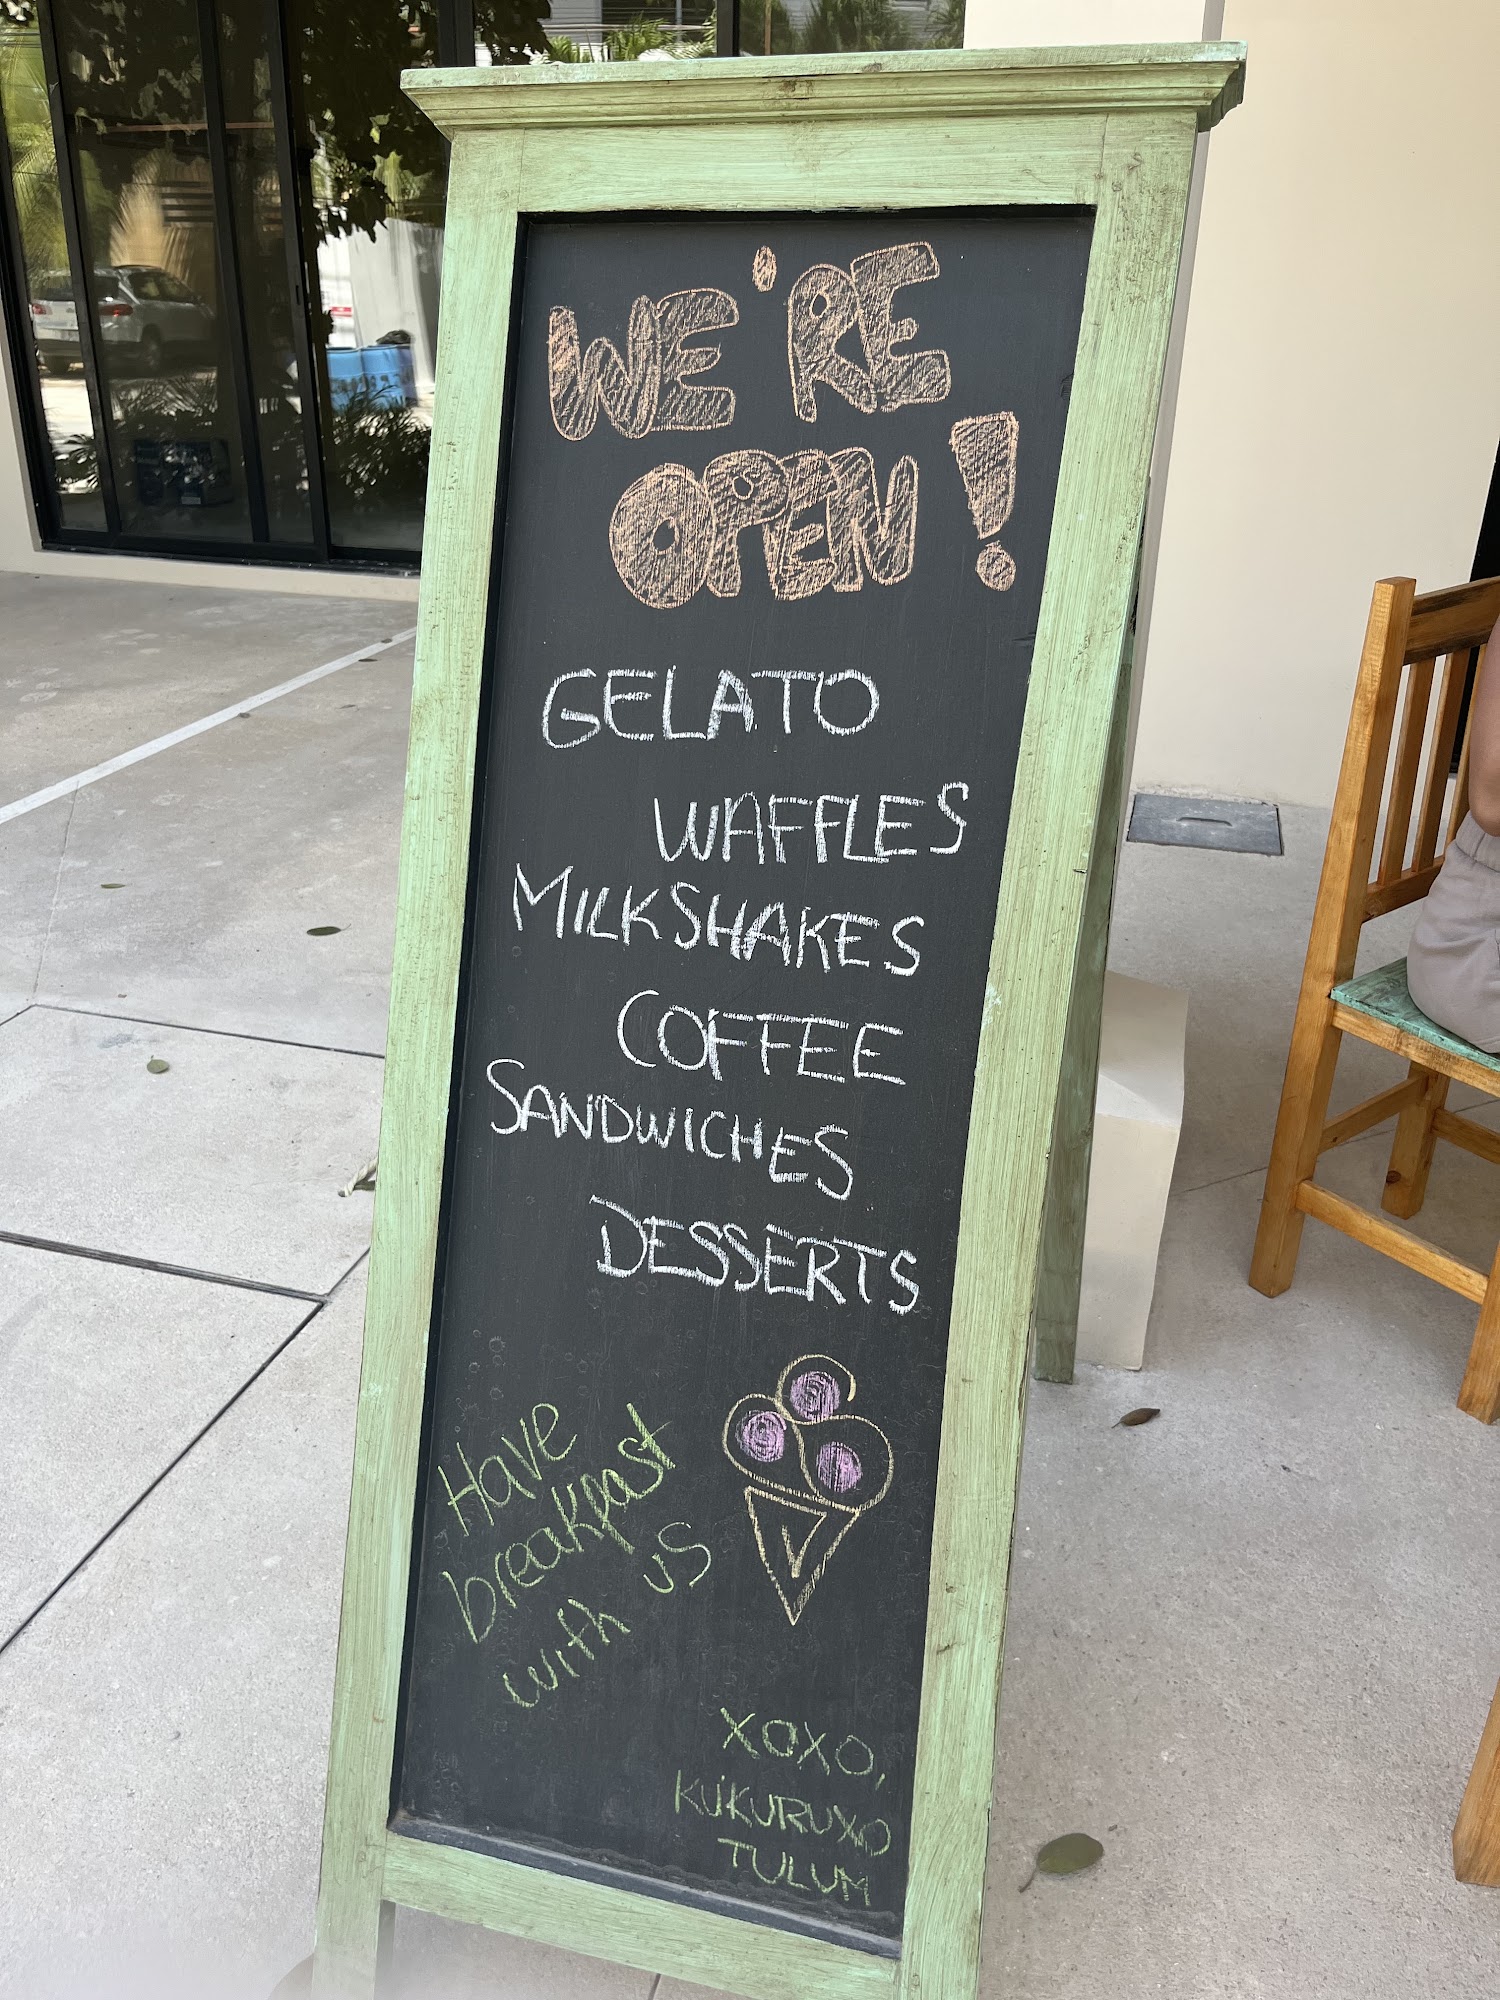 WE'RE
OPEN!
GELATO
WAFFLES
MILKSHAKES
COFFEE
SANDWICHES
DESSERTS
Have
breakpast
with us
XOXO,
KUKURUXO
TULUM